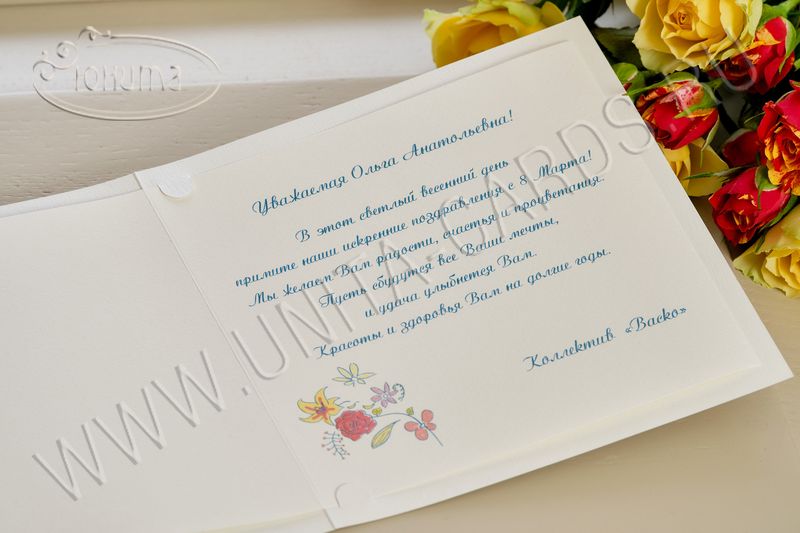 Юнита
Уважаемая Ольга Анатольевна!
В этот светлый весенний день
примите наши искренние поздравления с 8 Марта!
Мы желаем Вам радости, счастья и процветания.
Пусть сбудутся все Ваши мечты,
и удача улыбнется Вам.
Красоты и здоровья Вам на долгие годы.
Коллектив «Васко»
WWW.UNITA-CARDS.RU